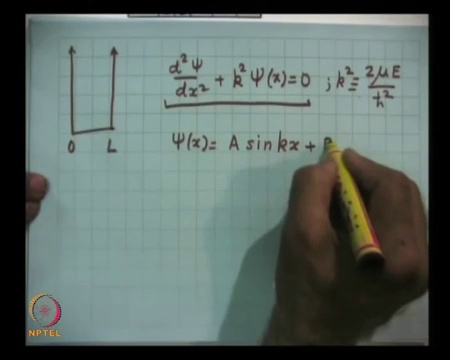 d²Ψ/dx² + k²Ψ(x)=0 ; k² = 2μE/ħ²
0 L
Ψ(x)= A sin kx +
NPTEL